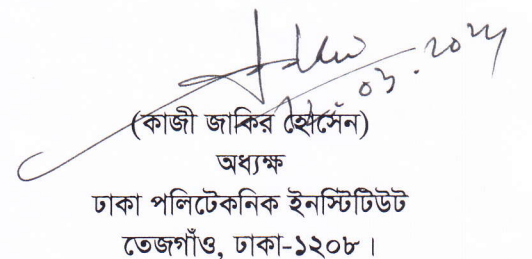 (কাজী জাকির হোসেন)
অধ্যক্ষ
ঢাকা পলিটেকনিক ইনস্টিটিউট
তেজগাঁও, ঢাকা-১২০৮।